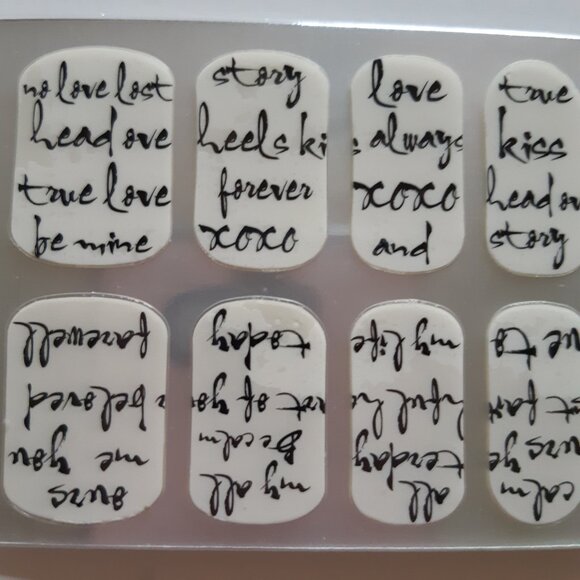 no love lost
head ove
true love
be mine
story
heels ki
forever
xoxo
love
s always
xoxo
and
true
kiss
head ov
story
ours
me you
beloved
farewell
my all
Be calm
art of yo
today
all
terday
my life
calm
urs ye